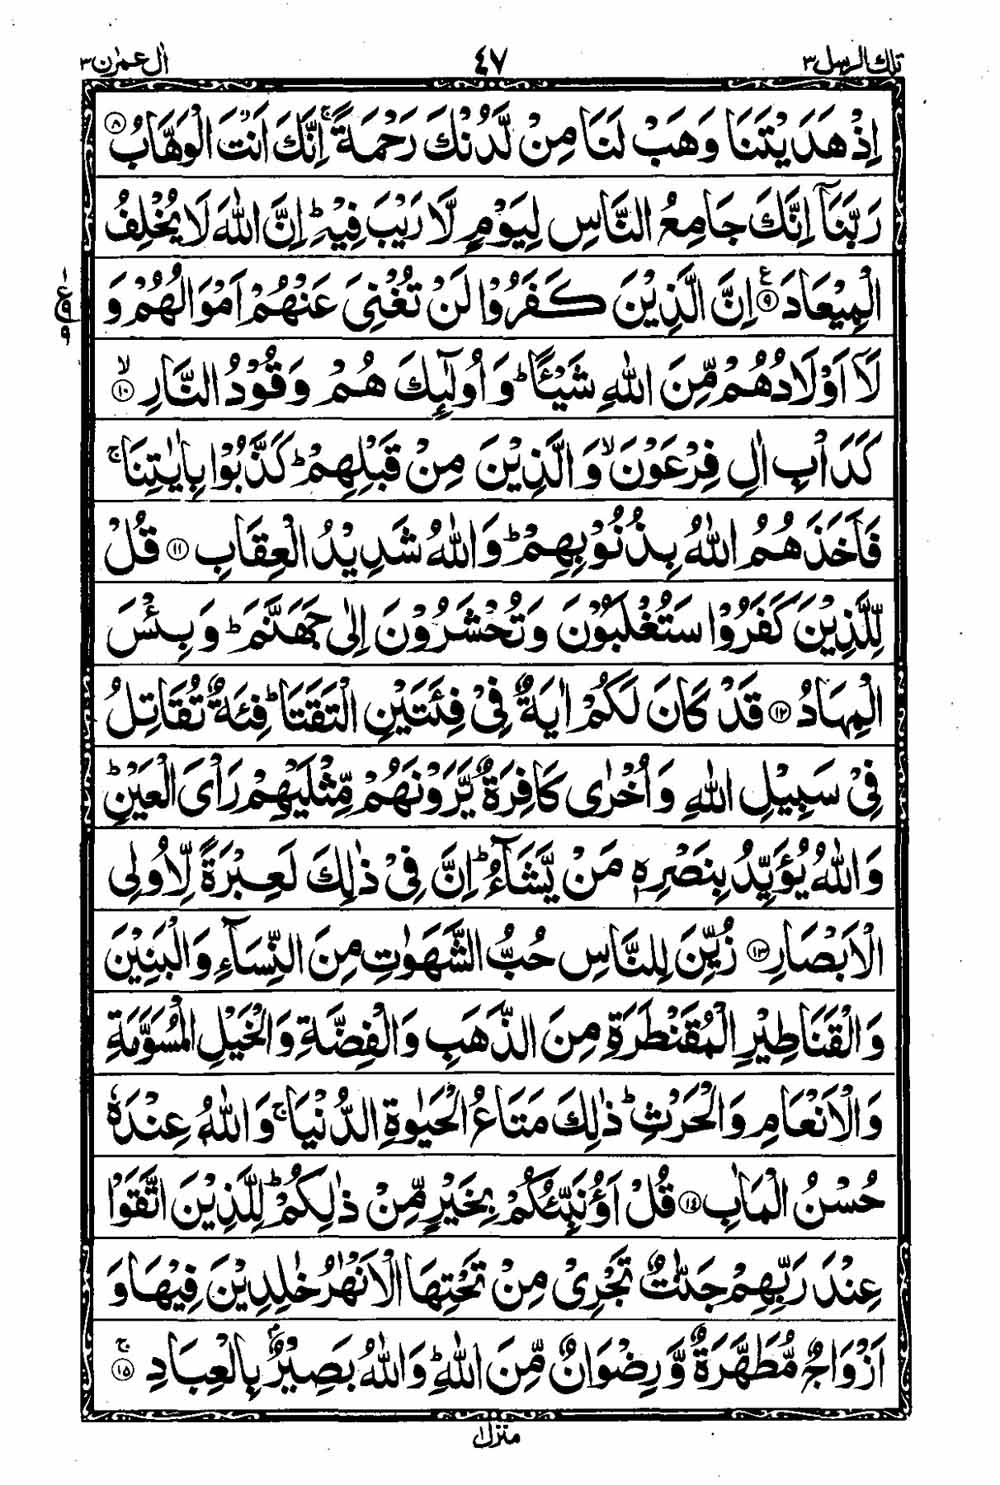 تلك الرسل ٣ ٤٧ اٰل عمرٰن ٣
اِذْ هَدَيْتَنَا وَهَبْ لَنَا مِنْ لَّدُنْكَ رَحْمَةً ۚ اِنَّكَ اَنْتَ الْوَهَّابُ ۝٨
رَبَّنَاۤ اِنَّكَ جَامِعُ النَّاسِ لِيَوْمٍ لَّا رَيْبَ فِيْهِ ؕ اِنَّ اللّٰهَ لَا يُخْلِفُ
الْمِيْعَادَ ۝٩ ع اِنَّ الَّذِيْنَ كَفَرُوْا لَنْ تُغْنِيَ عَنْهُمْ اَمْوَالُهُمْ وَ
لَاۤ اَوْلَادُهُمْ مِّنَ اللّٰهِ شَيْـًٔا ؕ وَ اُولٰٓئِكَ هُمْ وَقُوْدُ النَّارِ ۝١٠ ۙ
كَدَاْبِ اٰلِ فِرْعَوْنَ ۙ وَ الَّذِيْنَ مِنْ قَبْلِهِمْ ؕ كَذَّبُوْا بِاٰيٰتِنَا ۚ
فَاَخَذَهُمُ اللّٰهُ بِذُنُوْبِهِمْ ؕ وَ اللّٰهُ شَدِيْدُ الْعِقَابِ ۝١١ قُلْ
لِّلَّذِيْنَ كَفَرُوْا سَتُغْلَبُوْنَ وَ تُحْشَرُوْنَ اِلٰى جَهَنَّمَ ؕ وَ بِئْسَ
الْمِهَادُ ۝١٢ قَدْ كَانَ لَكُمْ اٰيَةٌ فِيْ فِئَتَيْنِ الْتَقَتَا ؕ فِئَةٌ تُقَاتِلُ
فِيْ سَبِيْلِ اللّٰهِ وَ اُخْرٰى كَافِرَةٌ يَّرَوْنَهُمْ مِّثْلَيْهِمْ رَاْيَ الْعَيْنِ ؕ
وَ اللّٰهُ يُؤَيِّدُ بِنَصْرِهٖ مَنْ يَّشَآءُ ؕ اِنَّ فِيْ ذٰلِكَ لَعِبْرَةً لِّاُولِى
الْاَبْصَارِ ۝١٣ زُيِّنَ لِلنَّاسِ حُبُّ الشَّهَوٰتِ مِنَ النِّسَآءِ وَ الْبَنِيْنَ
وَ الْقَنَاطِيْرِ الْمُقَنْطَرَةِ مِنَ الذَّهَبِ وَ الْفِضَّةِ وَ الْخَيْلِ الْمُسَوَّمَةِ
وَ الْاَنْعَامِ وَ الْحَرْثِ ؕ ذٰلِكَ مَتَاعُ الْحَيٰوةِ الدُّنْيَا ۚ وَ اللّٰهُ عِنْدَهٗ
حُسْنُ الْمَاٰبِ ۝١٤ قُلْ اَؤُنَبِّئُكُمْ بِخَيْرٍ مِّنْ ذٰلِكُمْ ؕ لِلَّذِيْنَ اتَّقَوْا
عِنْدَ رَبِّهِمْ جَنّٰتٌ تَجْرِيْ مِنْ تَحْتِهَا الْاَنْهٰرُ خٰلِدِيْنَ فِيْهَا وَ
اَزْوَاجٌ مُّطَهَّرَةٌ وَّ رِضْوَانٌ مِّنَ اللّٰهِ ؕ وَ اللّٰهُ بَصِيْرٌۢ بِالْعِبَادِ ۝١٥ ۚ
منزل ١